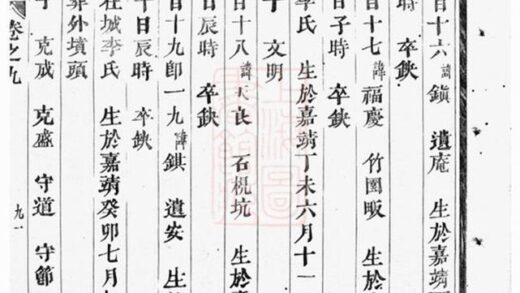 百十六 諱鎮 遺庵 生於嘉靖
時 卒缺
百十七 諱福慶 竹園畈 生於
日子時 卒缺
李氏 生於嘉靖丁未六月十一
子 文明
百十八 諱天良 石梘坑 生於
日辰時 卒缺
百十九即一九 諱錤 遺安 生
十日辰時 卒缺
城李氏 生於嘉靖癸卯七月
葬外墳頭
子 克成 克盛 守道 守節
卷之九 九一